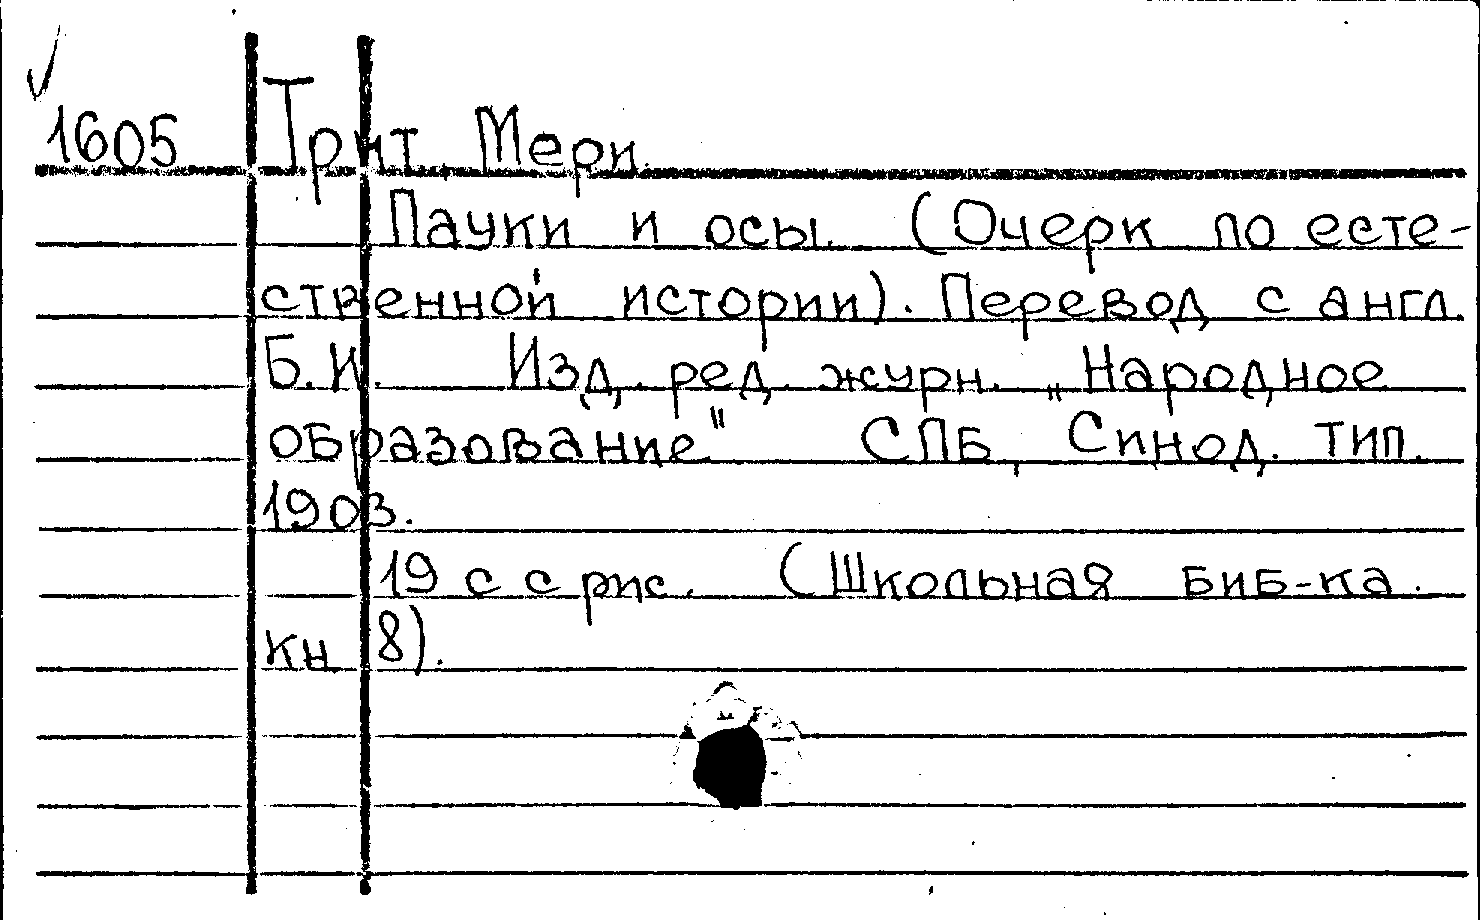 1605 Трит Мери.
Пауки и осы. (Очерк по есте-
ственной истории). Перевод с англ.
Б.И. Изд. ред. журн. „Народное
образование" СПБ, Синод. тип.
1903.
19 с с рис. (Школьная биб-ка.
кн 8).